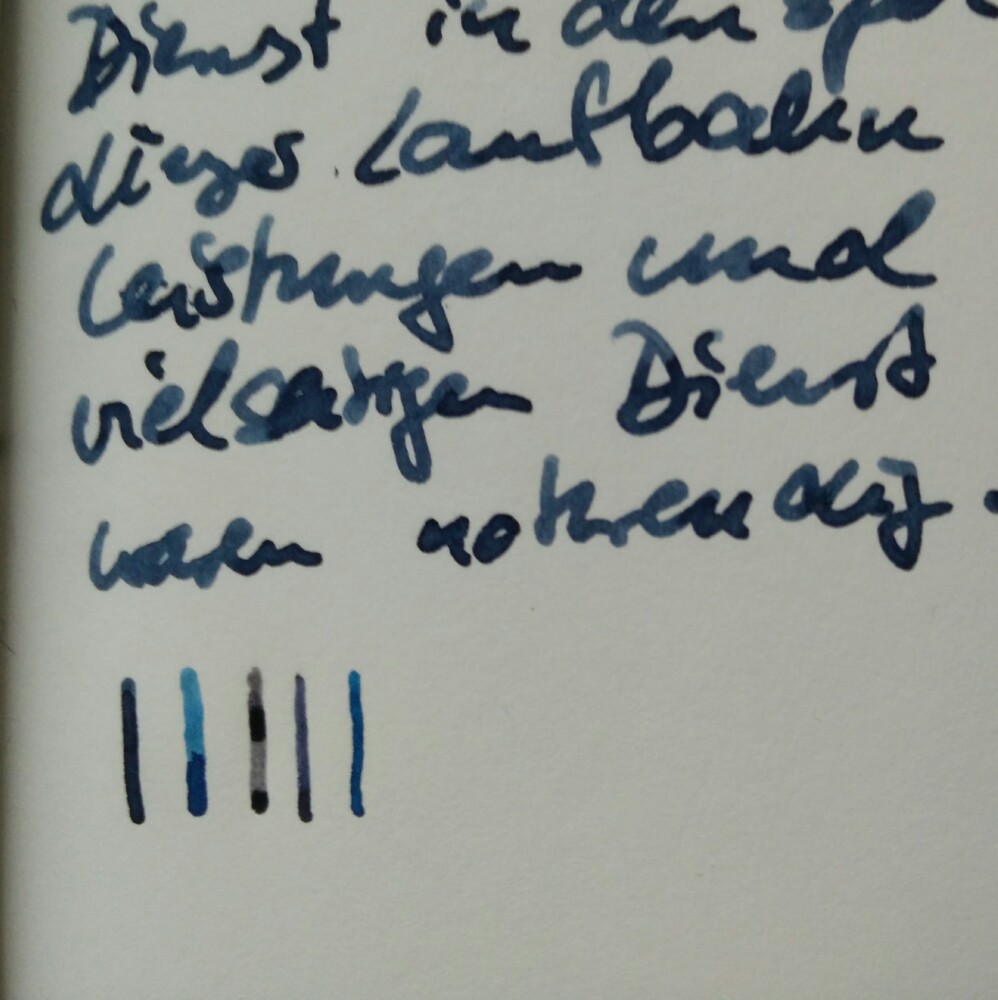 Dienst in den
dieser Laufbahn
Leistungen und
vielseitigen Dienst
waren notwendig.